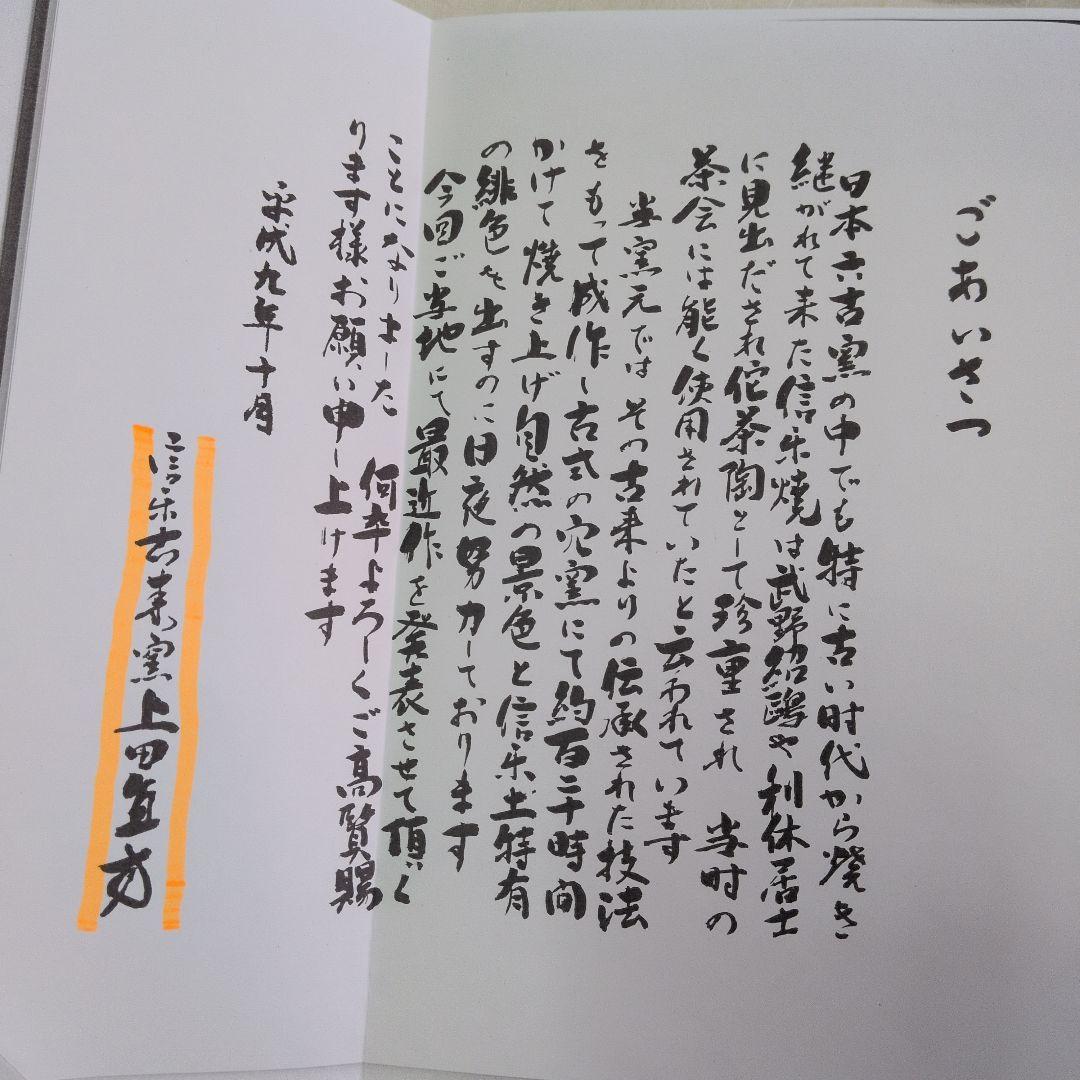 ごあいさつ
日本六古窯の中でも特に古い時代から焼き
継がれて来た信楽焼は武野紹鷗や利休居士
に見出だされ佗茶陶として珍重され 当時の
茶会には能く使用されていたと云われています
当窯元では その古来よりの伝承された技法
をもって成作し古式の穴窯にて約百二十時間
かけて焼き上げ自然の景色と信楽土特有
の緋色を出すのに日夜努力しております
今回ご当地にて最近作を発表させて頂く
ことになりました 何卒よろしくご高覧賜
ります様お願い申し上げます
平成九年十月
信楽古来窯上田直方